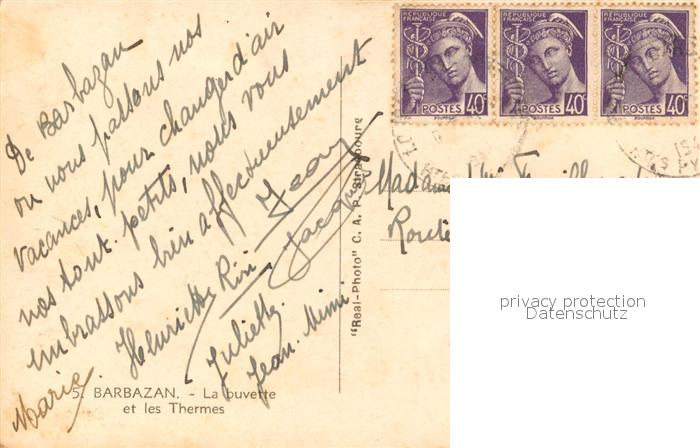 De Barbazan
où nous passons nos
vacances, pour changer d'air
nos tout petits, nous vous
embrassons bien affectueusement
Henriette Riri Jean
Jacques
Marie. Juliette.
Jean. Mimi
5. BARBAZAN. - La buvette
et les Thermes
"Real-Photo" C. A. P. Strasbourg
RÉPUBLIQUE FRANÇAISE
POSTES 40c
RÉPUBLIQUE FRANÇAISE
POSTES 40c
RÉPUBLIQUE FRANÇAISE
POSTES 40c
Madame
Route
privacy protection
Datenschutz